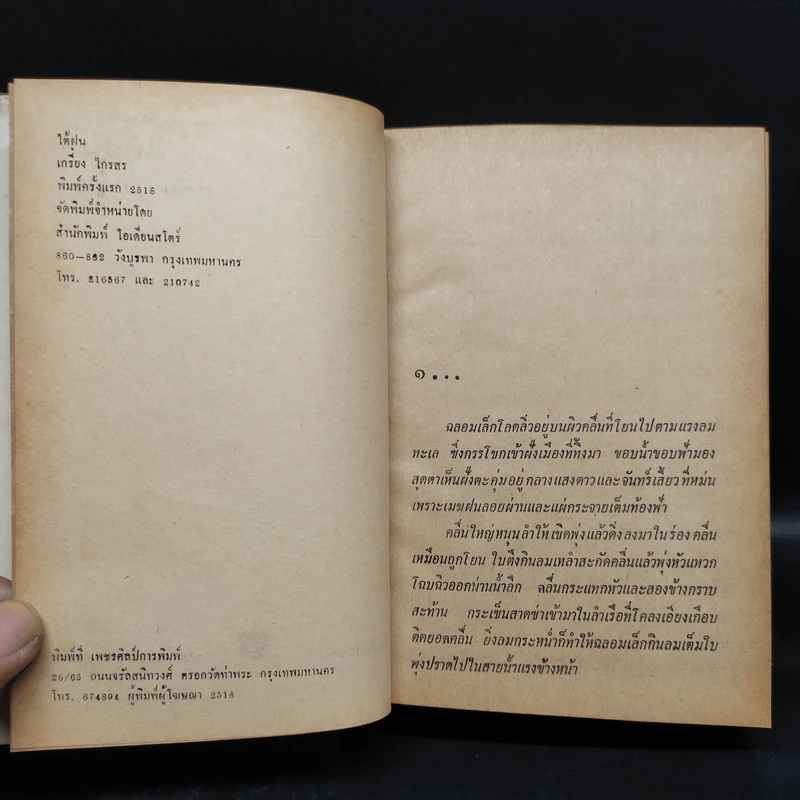 ใต้ฝุ่น
เกรียง ไกรสร
พิมพ์ครั้งแรก 2518
จัดพิมพ์จำหน่ายโดย
สำนักพิมพ์ โอเดียนสโตร์
860–862 วังบูรพา กรุงเทพมหานคร
โทร. 216567 และ 210742
พิมพ์ที่ เพชรศิลป์การพิมพ์
26/65 ถนนจรัลสนิทวงศ์ ตรอกวัดท่าพระ กรุงเทพมหานคร
โทร. 674894 ผู้พิมพ์ผู้โฆษณา 2518
๑...
ฉลอมเล็กโลดลิ่วอยู่บนผิวคลื่นที่โยนไปตามแรงลม
ทะเล ซึ่งกรรโชกเข้าฝั่งเมืองที่ทิ้งมา ขอบน้ำขอบฟ้ามอง
สุดตาเห็นฝั่งตะคุ่มอยู่กลางแสงดาวและจันทร์เสี้ยวที่หม่น
เพราะเมฆฝนลอยผ่านและแผ่กระจายเต็มท้องฟ้า
คลื่นใหญ่หนุนลำให้เชิดพุ่งแล้วดิ่งลงมาในร่องคลื่น
เหมือนถูกโยน ใบตึงกินลมเหลำสะกัดคลื่นแล้วพุ่งหัวแหวก
โฉบฉิวออกน่านน้ำลึก คลื่นกระแทกหัวและสองข้างกราบ
สะท้าน กระเซ็นสาดซ่าเข้ามาในลำเรือที่โคลงเอียงเกือบ
ติดยอดคลื่น ยิ่งลมกระหน่ำก็ทำให้ฉลอมเล็กกินลมเต็มใบ
พุ่งปราดไปในสายน้ำแรงข้างหน้า